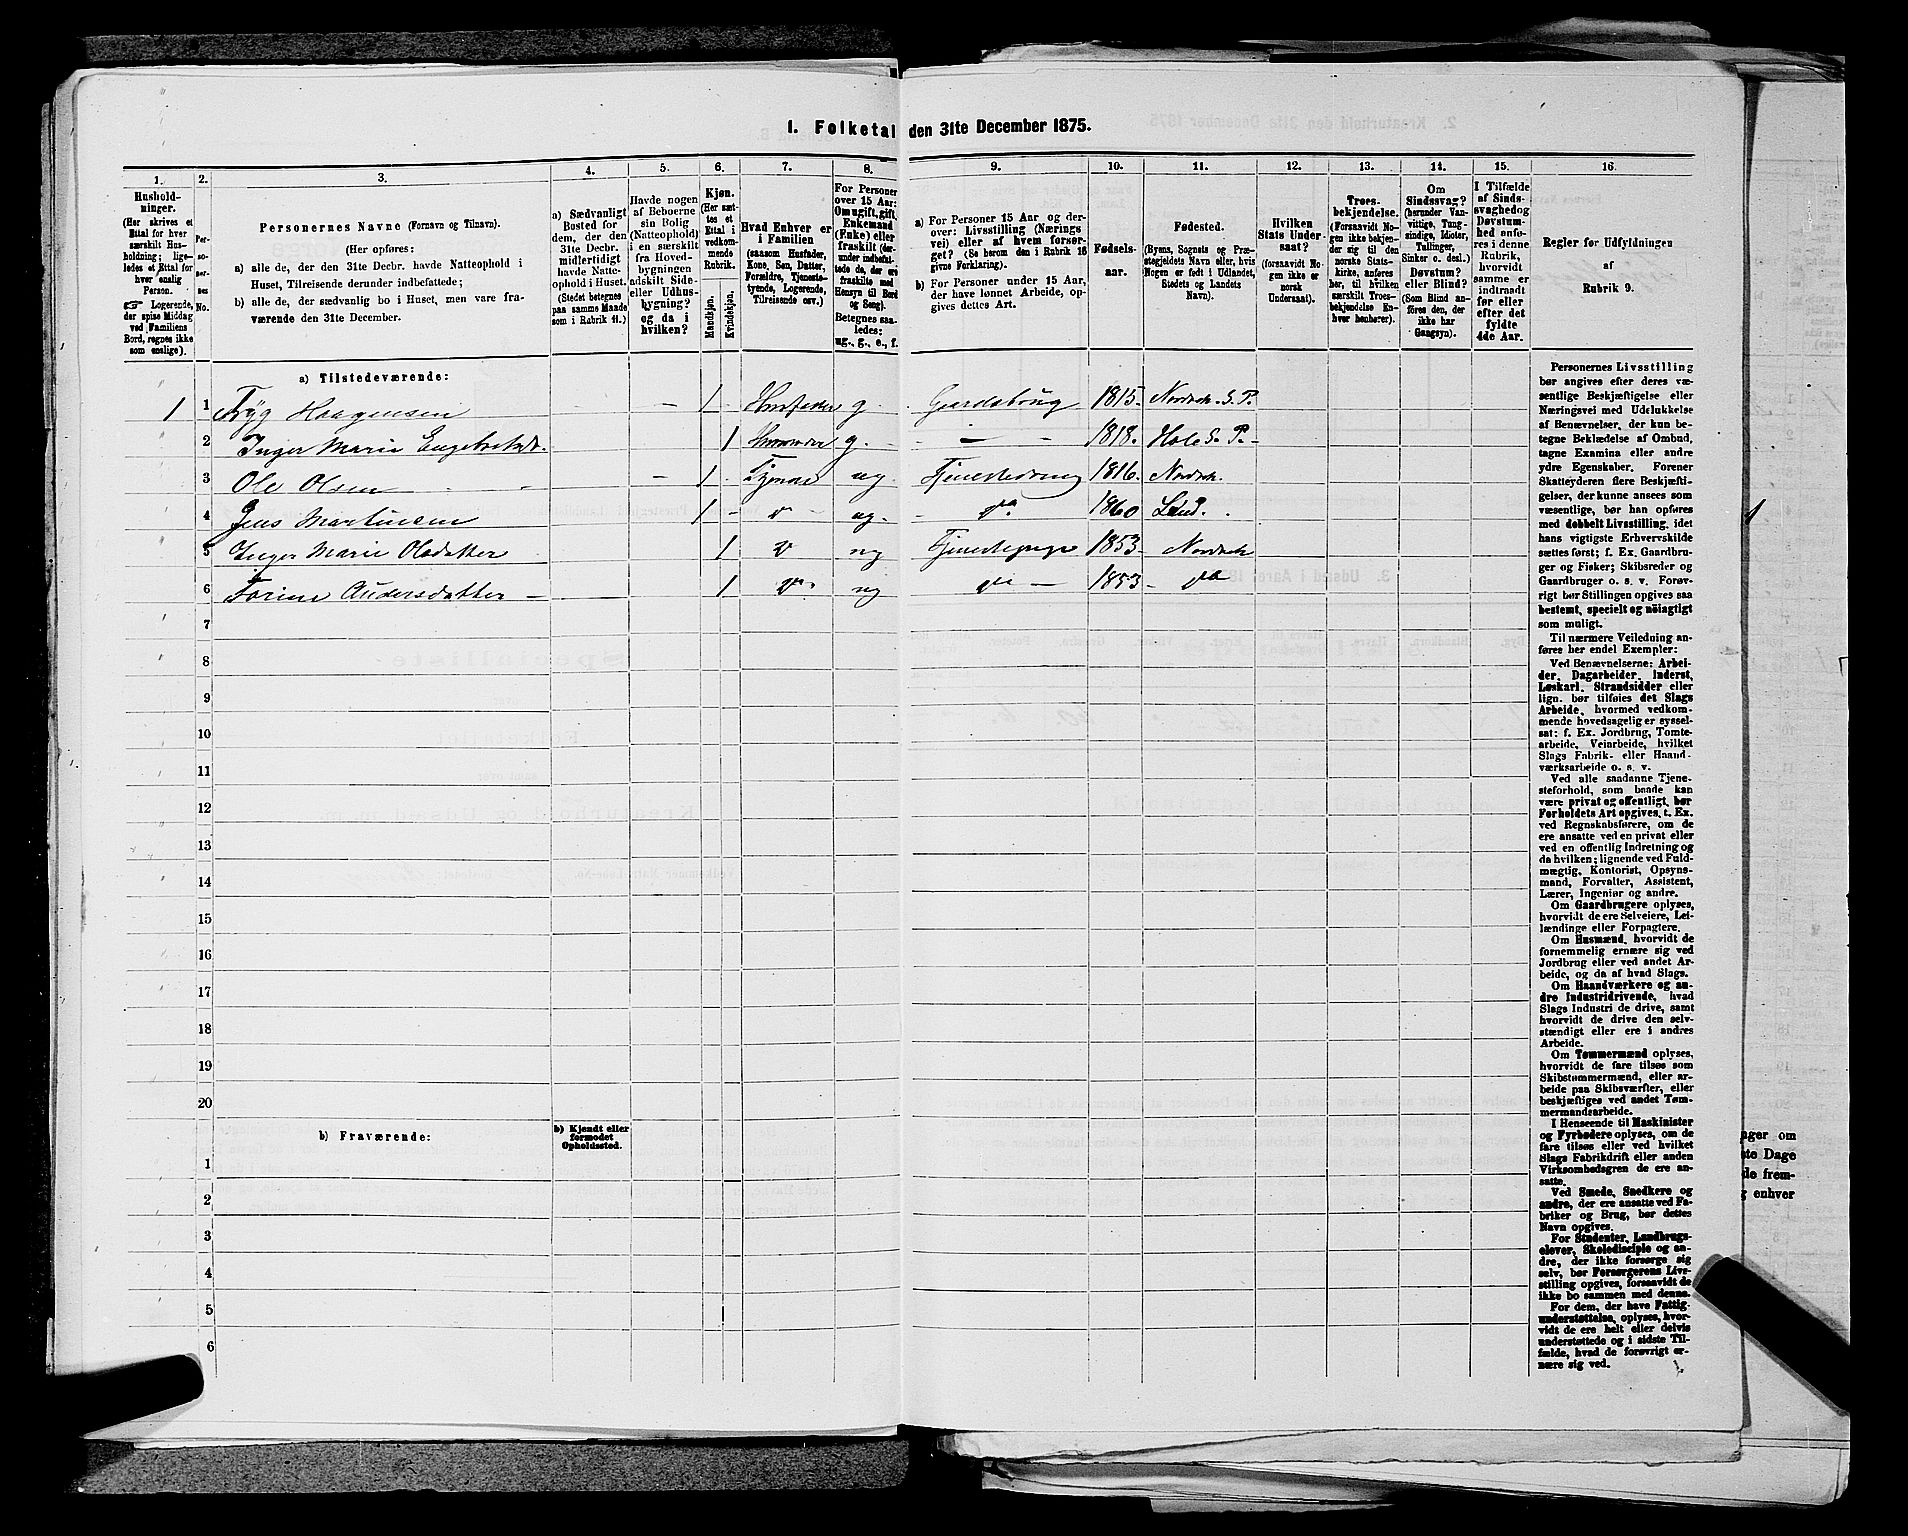 I. Folketal den 31te December 1875.
1. 2. 3. 4. 5. 6. 7. 8. 9. 10. 11. 12. 13. 14. 15. 16.
Hushold-
ninger.
(Her skrives et
Ettal for hver
særskilt Hus-
holdning; lige-
ledes et Ettal for
hver enslig
Person.
☞ Logerende,
der spise Middag
ved Familiens
Bord, regnes ikke
som enslige).
Per-
so-
ner-
nes
No.
Personernes Navne (Fornavn og Tilnavn).
(Her opføres:
a) alle de, der den 31te Decbr. havde Natteophold i
Huset, Tilreisende derunder indbefattede;
b) alle de, der sædvanlig bo i Huset, men vare fra-
værende den 31te December.
a) Sædvanligt
Bosted for
dem, der den
31te Decbr.
midlertidigt
havde Natte-
ophold i Huset.
(Stedet betegnes
paa samme Maade
som i Rubrik 11.)
Havde nogen
af Beboerne
sin Bolig
(Natteophold)
i en særskilt
fra Hoved-
bygningen
adskilt Side-
eller Udhus-
bygning?
og da i
hvilken?
Kjøn.
(Her sæt-
tes et
Ettal i
vedkom-
mende
Rubrik.
Mandkjøn.
Kvindekjøn.
Hvad Enhver er
i Familien
(saasom Husfader,
Kone, Søn, Datter,
Forældre, Tjeneste-
tyende, Logerende,
Tilreisende osv.)
For Personer
over 15 Aar:
Om ugift, gift,
Enkemand
(Enke) eller
fraskilt (der-
under indbefat-
tede de, der ere
fraskilte med
Hensyn til Bord
og Seng).
Betegnes saa-
ledes:
ug., g., e., f.
a) For Personer 15 Aar og der-
over: Livsstilling (Nærings
vei) eller af hvem forsør-
get? (Se herom den i Rubrik 16
givne Forklaring).
b) For Personer under 15 Aar,
der have lønnet Arbeide, op-
gives dettes Art.
Fødsels-
aar.
Fødested.
(Byens, Sognets og Præ-
stegjeldets Navn eller, hvis
Nogen er født i Udlandet,
Stedets og Landets
Navn).
Hvilken
Stats Under-
saat?
(forsaavidt No-
gen ikke er
norsk
Undersaat).
Troes-
bekjendelse.
(Forsaavidt No-
gen ikke bekjen-
der sig til den
norske Stats-
kirke, anføres
her, til hvilken
særskilt Troes-
bekjendelse En-
hver henhører).
Om
Sindssvag?
(herunder Van-
vittige, Tung-
sindige, Idioter,
Tullinger,
Sinker o. desl.)
Døvstum?
eller Blind?
(Som Blind an-
føres den, der
ikke har
Gangsyn).
I Tilfælde
af Sinds-
svaghed og
Døvstum-
hed anfø-
res i denne
Rubrik,
hvorvidt
samme er
indtraadt
før eller
efter det
fyldte
4de Aar.
Regler for Udfyldningen
af
Rubrik 9.
a) Tilstedeværende:
1 1 Tryg Haagensen 1 Husfader g. Gaardsbrug 1815 Nordreh. S. P.
2 Inger Marie Engebretsdt. 1 g. 1818 Hole S. P.
3 Ole Olsen 1 Tyende ug 1816 Nordreh.
4 Jens Martinsen 1 ug. do 1860
5 Inger Marie Olsdatter 1 ug Tjenestepige 1853 Nordreh
6 Torine Andersdatter 1 do ug do 1853 do
7
8
9
10
11
12
13
14
15
16
17
18
19
20
b) Fraværende:
b) Kjendt eller
formodet
Opholdssted.
1
2
3
4
5
6
Personernes Livsstilling
bør angives efter deres væ-
sentlige Beskjæftigelse eller
Næringsvei med Udelukkelse
af Benævnelser, der kun be-
tegne Beklædelse af Ombud,
tagne Examina eller andre
ydre Egenskaber. Forener
Skatteyderen flere Beskjæfti-
gelser, der kunne ansees som
væsentlige, bør han opføres
med dobbelt Livsstilling, idet
hans vigtigste Erhvervskilde
sættes først; f. Ex. Gaardbru-
ger og Fisker; Skibsreder og
Gaardbruger o. s. v. Forøv-
rigt bør Stillingen opgives saa
bestemt, specielt og nöiagtigt
som muligt.
Til nærmere Veiledning an-
føres her endel Exempler:
Ved Benævnelserne: Arbei-
der, Dagarbeider, Inderst,
Løskarl, Strandsidder eller
lign. bør tilføies det Slags
Arbeide, hvormed vedkom-
mende hovedsagelig er syssel-
sat: f. Ex. Jordbrug, Tomte-
arbeide, Veiarbeide, hvilket
Slags Fabrik- eller Haand-
værksarbeide o. s. v.
Ved alle saadanne Tjene-
steforhold, som baade kan
være privat og offentligt, bør
Forholdets Art opgives, t. Ex.
ved Regnskabsførere, om de
ere ansatte ved en privat eller
ved en offentlig Indretning og
da hvilken; lignende ved Fuld-
mægtig, Kontorist, Opsyns-
mand, Forvalter, Assistent,
Lærer, Ingeniør og andre.
Om Gaardbrugere oplyses,
hvorvidt de ere Selveiere, Lei-
lændinge eller Forpagtere.
Om Husmænd, hvorvidt de
fornemmelig ernære sig ved
Jordbrug eller ved andet Ar-
beide, og da af hvad Slags.
Om Haandværkere og an-
dre Industridrivende, hvad
Slags Industri de drive, samt
hvorvidt de drive den selv-
stændigt eller ere i andres
Arbeide.
Om Tømmermænd oplyses,
hvorvidt de fare tilsøs som
Skibstømmermænd, eller ar-
beide paa Skibsværfter, eller
beskjæftiges ved andet Tøm-
mermandsarbeide.
I Henseende til Maskinister
og Fyrbødere oplyses, om de
fare tilsøs eller ved hvilket
Slags Fabrikdrift eller anden
Virksomhedsgren de ere an-
satte.
Ved Smede, Snedkere og
andre, der ere ansatte ved Fa-
briker og Brug, bør dettes
Navn opgives.
For Studenter, Landbrugs-
elever, Skoledisciple og an-
dre, der ikke forsørge sig
selv, bør Forsørgerens Livs-
stilling opgives, forsaavidt de
ikke bo sammen med denne.
For dem, der have Fattig-
understøttelse, oplyses, hvor-
vidt de ere helt eller delvis
understøttede og i sidste Til-
fælde, hvad de forøvrigt er-
nære sig ved.